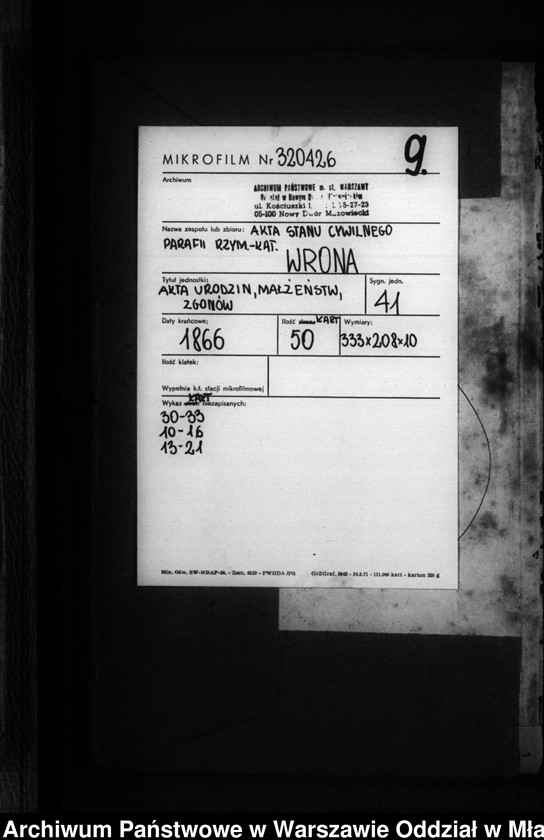 MIKROFILM Nr 320426
9.
Archiwum
ARCHIWUM PAŃSTWOWE m. st. WARSZAWY
w Nowym
ul. Kościuszki
05-100 Nowy Dwór Mazowiecki
Nazwa zespołu lub zbioru: AKTA STANU CYWILNEGO
PARAFII RZYM.-KAT.
WRONA
Tytuł jednostki:
AKTA URODZIN, MAŁŻEŃSTW,
ZGONÓW
Sygn. jedn.
41
Daty krańcowe;
1866
Ilość KART
50
Wymiary:
333x208x10
Ilość klatek:
Wypełnia k.t. stacji mikrofilmowej
KART
Wykaz niezapisanych:
30-33
10-16
13-21
Min. Ośw. SW-NDAP-16. - Zam. 6139 - PWHDA /Pń GrZGraf. 3943 - 24.6.71 - 111.000 kart - karton 220 g
Archiwum Państwowe w Warszawie Oddział w Mła